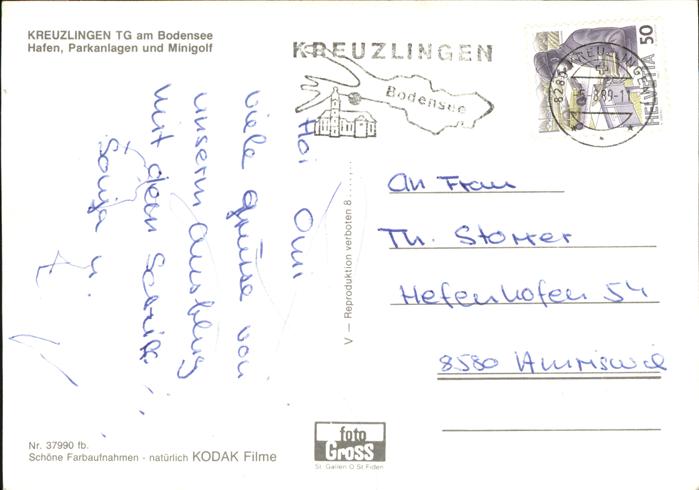 KREUZLINGEN TG am Bodensee
Hafen, Parkanlagen und Minigolf
KREUZLINGEN
Bodensee
8280 KREUZLINGEN
HELVETIA 50
Hoi Omi
viele Grüsse von
unserm Ausflug
mit dem
Sonja u.
An Frau
Th.
Hefenhofen 54
8580 Amriswil
V – Reproduktion verboten.8......
Nr. 37990 fb.
Schöne Farbaufnahmen - natürlich KODAK Filme
foto
Gross
St. Gallen O St. Fiden